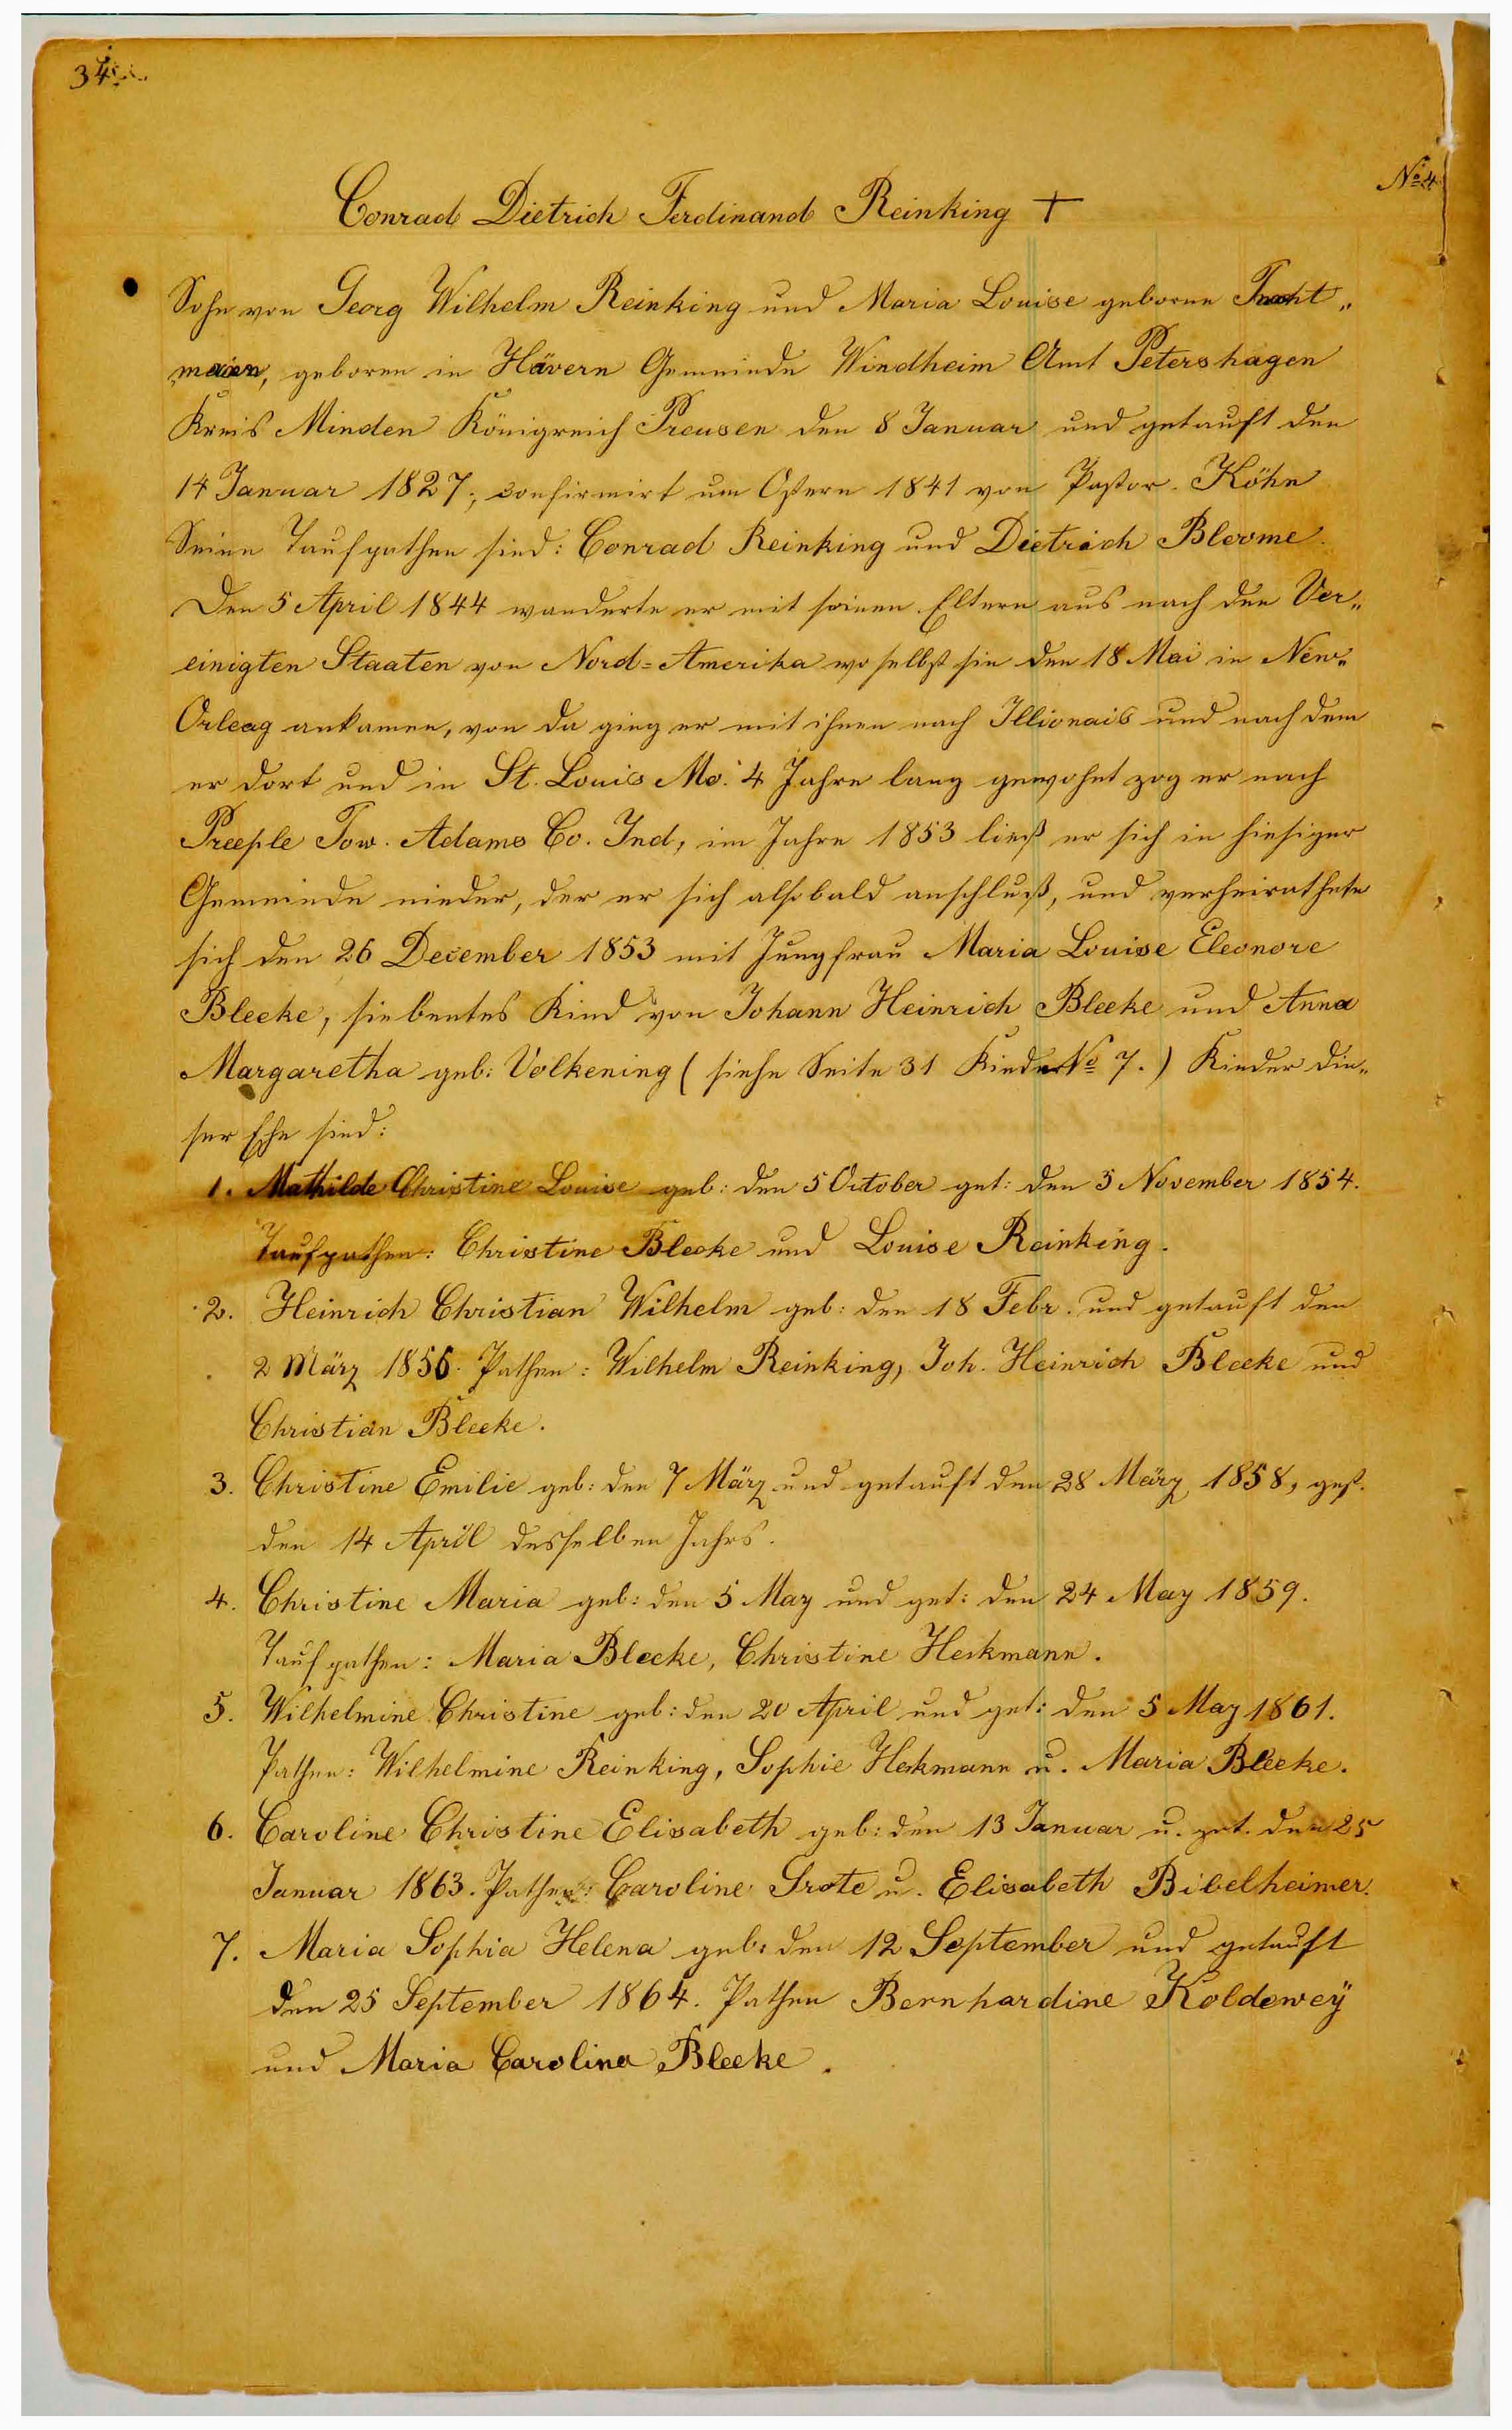 34.
No 4
Conrad Dietrich Ferdinand Reinking +
Sohn von Georg Wilhelm Reinking und Maria Louise geborne
maier, geboren in Hävern Gemeinde Windheim Amt Petershagen
Kreis Minden Königreich Preusen den 8 Januar und getauft den
14 Januar 1827; confirmirt um Ostern 1841 von Pastor Köhn
Seine Taufpathen sind: Conrad Reinking und Dietrich Bleome.
Den 5 April 1844 wanderte er mit seinen Eltern aus nach den Ver„
einigten Staaten von Nord=Amerika woselbst sie den 18 Mai in New„
Orleag ankamen, von da ging er mit ihnen nach Illionais und nach dem
er dort und in St. Louis Mo. 4 Jahre lang gewohnt zog er nach
Preeple Tow. Adams Co. Ind, im Jahre 1853 ließ er sich in hiesiger
Gemeinde nieder, der er sich alsobald anschluß, und verheirathete
sich den 26 December 1853 mit Jungfrau Maria Louise Eleonore
Bleeke, siebentes Kind von Johann Heinrich Bleeke und Anna
Margaretha geb: Volkening (siehe Seite 31 Kinder No 7.) Kinder die„
ser Ehe sind:
1. Mathilde Christine Louise geb: den 5 October get: den 5 November 1854.
Taufpathen: Christine Bleeke und Louise Reinking.
2. Heinrich Christian Wilhelm geb: den 18 Febr. und getauft den
2 März 1856. Pathen: Wilhelm Reinking, Joh. Heinrich Bleeke und
Christian Bleeke.
3. Christine Emilie geb: den 7 März und getauft den 28 März 1858, gest.
den 14 April desselben Jahrs.
4. Christine Maria geb: den 5 May und get: den 24 May 1859.
Taufpathen: Maria Bleeke, Christine Heckmann.
5. Wilhelmine Christine geb: den 20 April und get: den 5 May 1861.
Pathen: Wilhelmine Reinking, Sophie Heckmann u. Maria Bleeke.
6. Caroline Christine Elisabeth geb: den 13 Januar u. get. den 25
Januar 1863. Pathen: Caroline Grote u. Elisabeth Bibelheimer.
7. Maria Sophia Helena geb: den 12 September und getauft
den 25 September 1864. Pathen Bernhardine Koldewey
und Maria Carolina Bleeke.